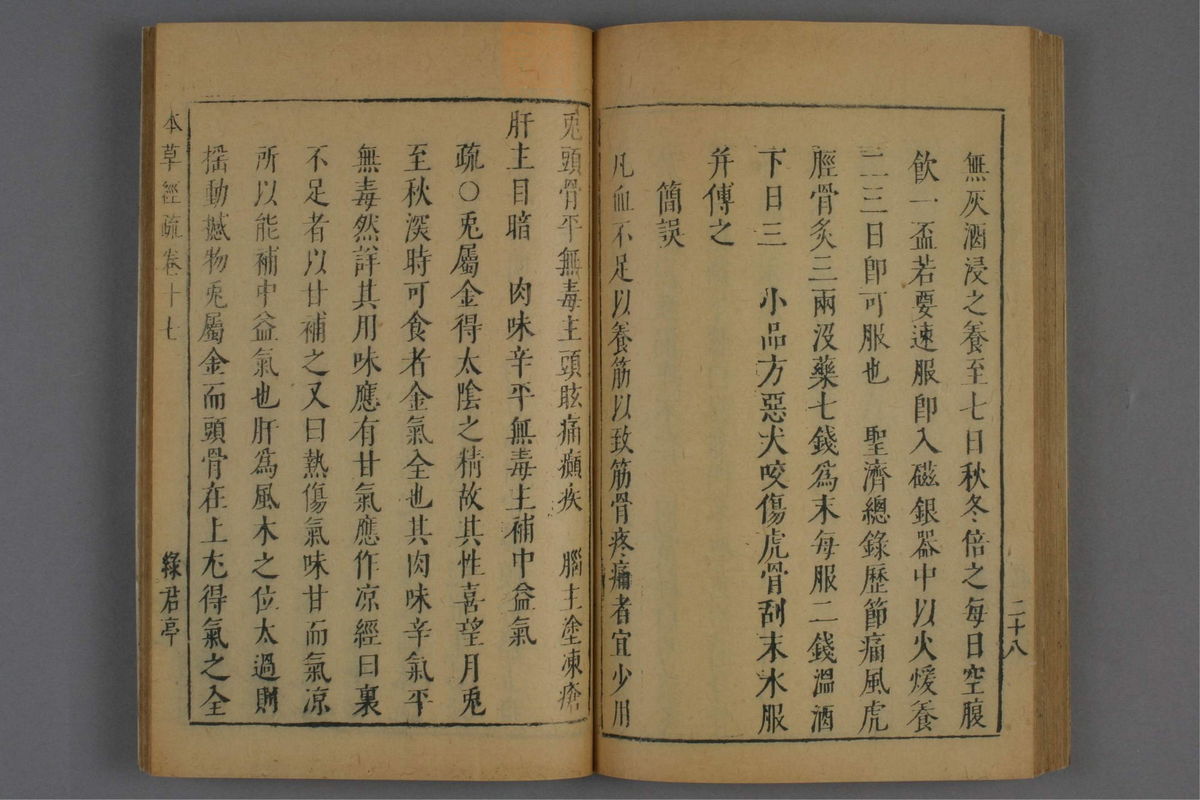 無灰酒浸之養至七日秋冬倍之每日空腹
飲一盃若要速服卽入磁銀器中以火煖養
二三日卽可服也　聖濟總錄歷節痛風虎
脛骨炙三兩沒藥七錢爲末每服二錢溫酒
下日三　小品方惡犬咬傷虎骨刮末水服
幷傅之
簡誤
凡血不足以養筋以致筋骨疼痛者宜少用
二十八
兎頭骨平無毒主頭眩痛癲疾　腦主塗凍瘡
肝主目暗　肉味辛平無毒主補中益氣
疏〇兎屬金得太陰之精故其性喜望月兎
至秋深時可食者金氣全也其肉味辛氣平
無毒然詳其用味應有甘氣應作凉經曰裏
不足者以甘補之又曰熱傷氣味甘而氣凉
所以能補中益氣也肝爲風木之位太過則
搖動撼物兎屬金而頭骨在上尤得氣之全
本草經疏卷十七
綠君亭